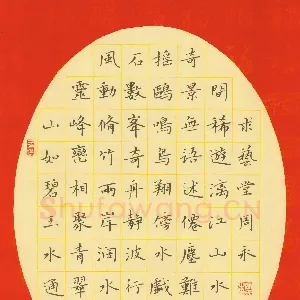 求藝堂周永
間稀遊漓江山水
奇景無語述僊塵難
搖鷗鳴鳥翔傍水戲
石數峯奇舟靜波行
風動脩竹兩岸潤水
靈峰巒相聚青翠
山如碧玉水通
Shufawang.CN